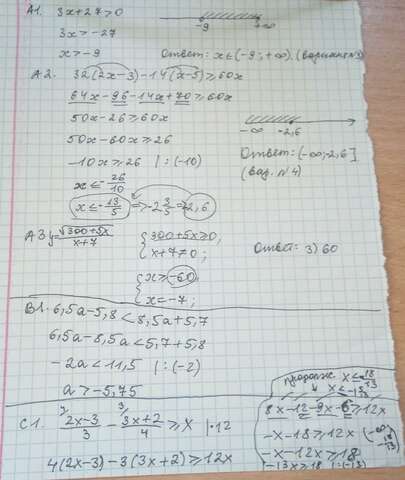 А1. 3x+27>0
3x>-27
x>-9
-9 +∞
Ответ: x∈(-9; +∞).
А2. 32(2x-3)-14(x-5)≥60x
64x-96-14x+70≥60x
50x-26≥60x
50x-60x≥26
-10x≥26 |:(-10)
x≤-26/10
x≤-13/5 ⇒ -2 3/5 ⇒ -2,6
-∞ -2,6
Ответ: (-∞;-2,6]
(вар. №4)
А3 y=√(300+5x)/(x+7)
{300+5x≥0,
x+7≠0;
{x≥-60,
x=-7;
Ответ: 3) 60
В1. 6,5a-5,8<8,5a+5,7
6,5a-8,5a<5,7+5,8
-2a<11,5 |:(-2)
a>-5,75
С1. (2x-3)/3 - (3x+2)/4 ≥ x |·12
4(2x-3)-3(3x+2)≥12x
продолж. x≤-18/13
8x-12-9x-6≥12x
-x-18≥12x
-x-12x≥18
-13x≥18 |:(-13)